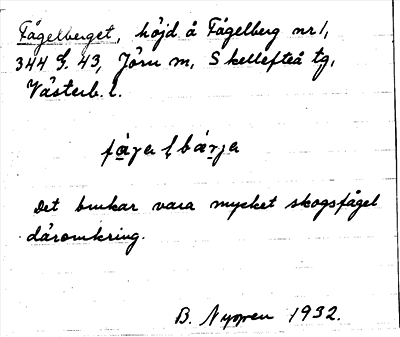 Fågelberget, höjd å Fågelberg nr 1,
344 S. 43, Jörn sn, Skellefteå tg,
Västerb. l.
Det brukar vara mycket skogsfågel
däromkring.
B. Nygren 1932.